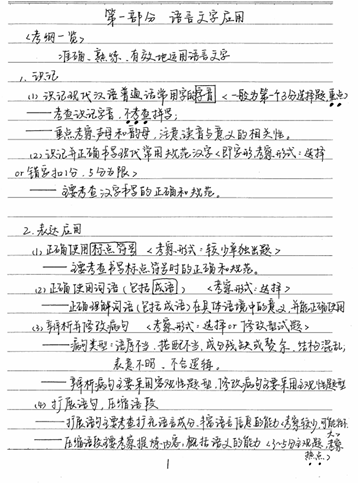 第一部分 语言文字应用
<考纲一览>
准确、熟练、有效地运用语言文字
1. 识记
(1) 识记现代汉语普通话常用字的字音 <一般为第一个3分选择题,重点>
——考查识记字音,不考查拼写;
——重点考察声母和韵母,注意读音与意义的相关性。
(2) 识记并正确书写现代常用规范汉字 <即字形,考察形式:选择
or 错字扣1分,5分为限>
——主要考查汉字书写的正确和规范。
2. 表达应用
(1) 正确使用标点符号 <考察形式:较少单独出题>
——主要考查书写标点符号时的正确和规范。
(2) 正确使用词语 (包括成语) <考察形式:选择>
——正确理解词语(包括成语)在具体语境中的意义,并能正确使用
(3) 辨析并修改病句 <考察形式:选择or修改型试题>
——病句类型:语序不当,搭配不当,成分残缺或赘余,结构混乱,
表意不明,不合逻辑。
——辨析病句主要采用客观性题型,修改病句主要采用主观性题型
(4) 扩展语句,压缩语段
——扩展语句主要考查扩充语言成分、丰富语言信息的能力<考察较少,可能
——压缩语段主要考察提炼内容,概括语义的能力 <3~5分主观题,考察
热点>
1